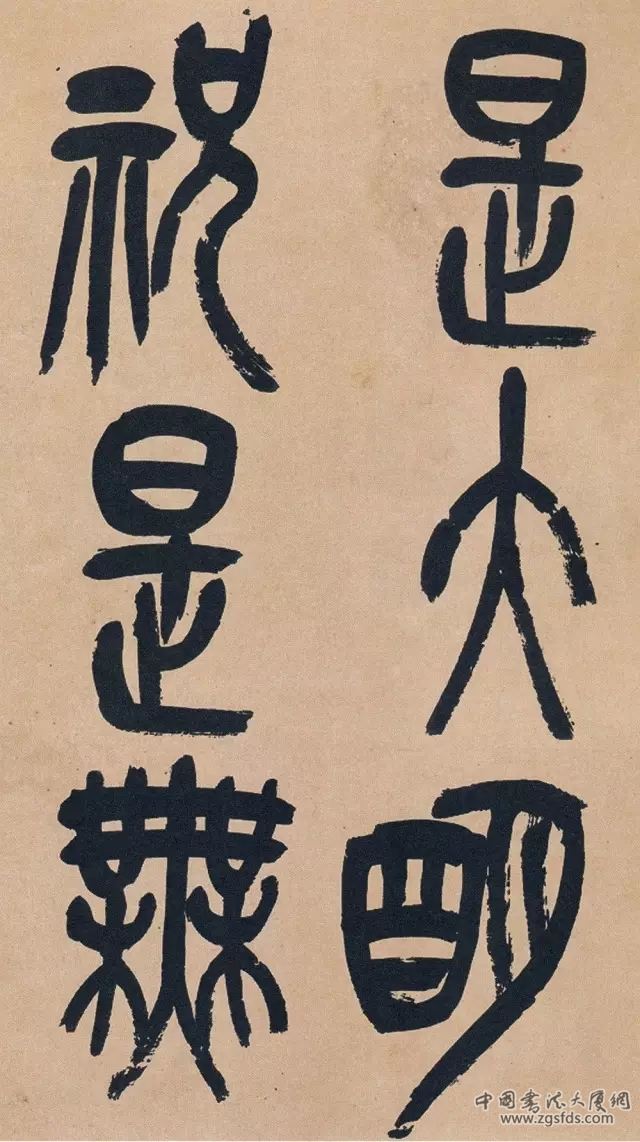 是大明
祝是無
中國書法大廈網
www.zgsfds.com